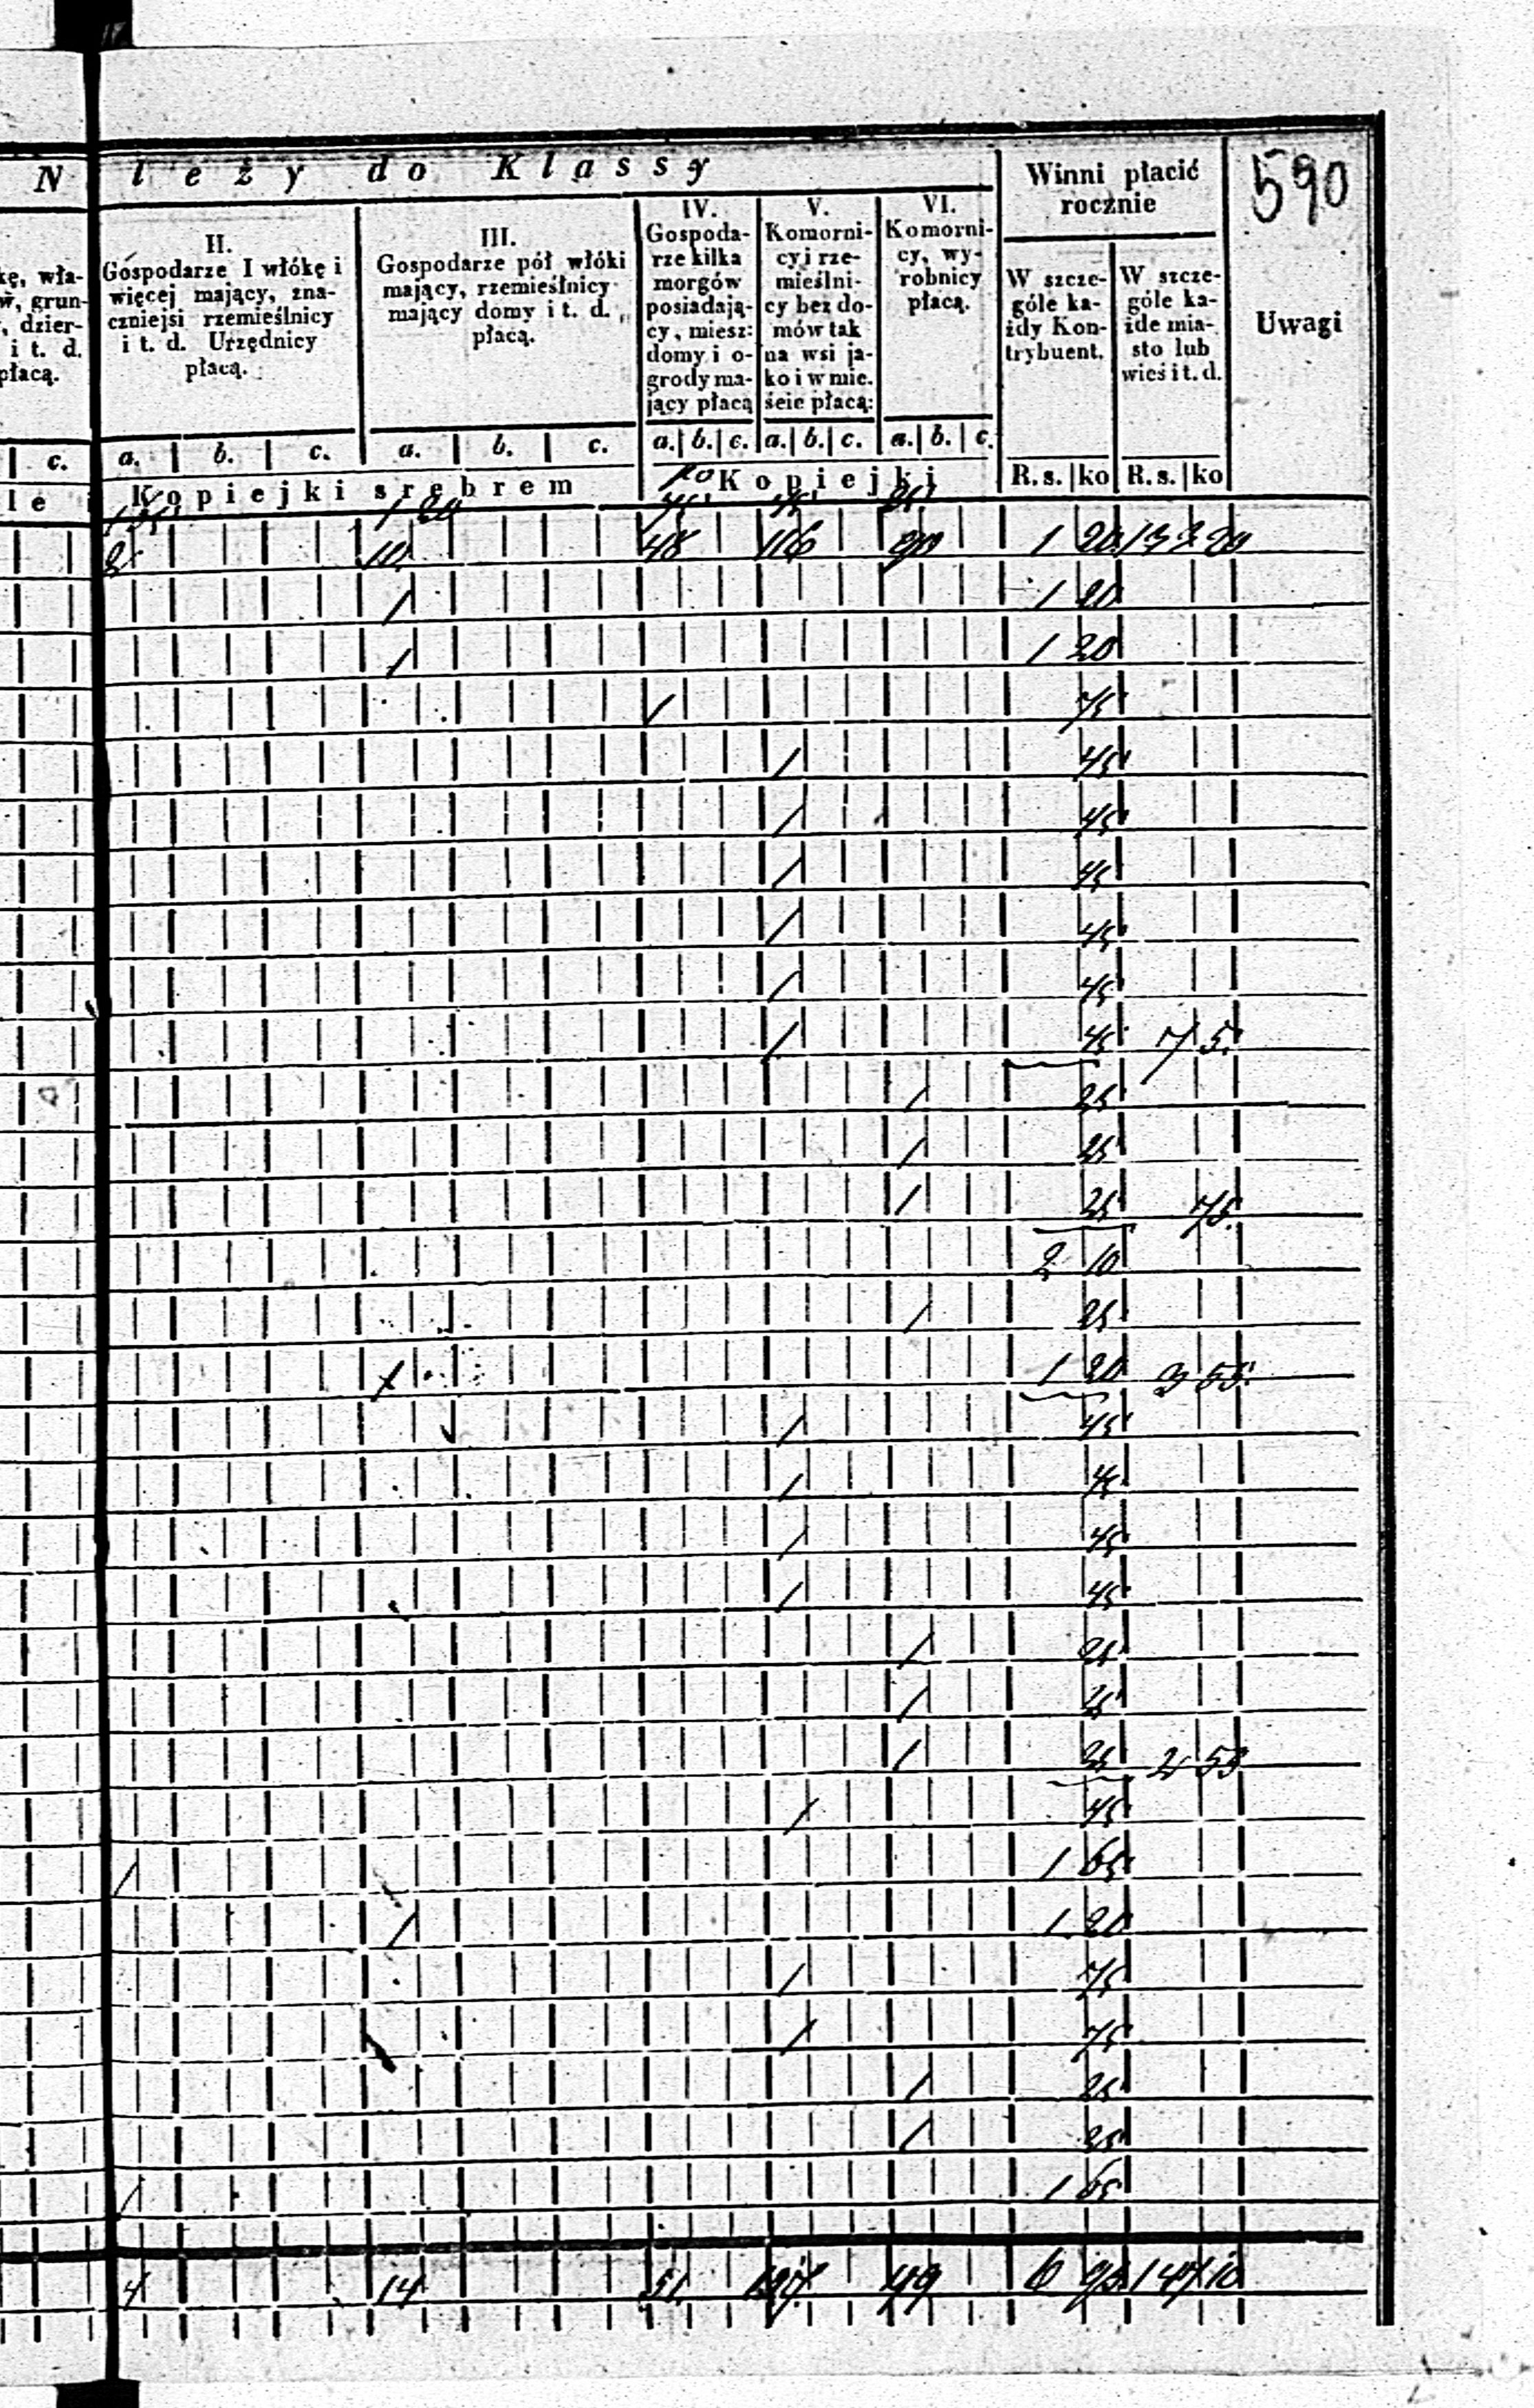 N leży do Klassy
Winni płacić rocznie
590
kę, wła-
w, grun-
, dzier-
i t. d.
płacą.
II.
Gospodarze I włókę i
więcej mający, zna-
czniejsi rzemieślnicy
i t. d. Urzędnicy
płacą.
III.
Gospodarze pół włóki
mający, rzemieślnicy
mający domy i t. d.
płacą.
IV.
Gospoda-
rze kilka
morgów
posiadają-
cy, miesz:
domy i o-
grody ma-
jący płacą
V.
Komorni-
cy i rze-
mieślni-
cy bez do-
mów tak
na wsi ja-
ko i w mie.
ście płacą:
VI.
Komorni-
cy, wy-
robnicy
płacą.
W szcze-
góle ka-
żdy Kon-
trybuent.
W szcze-
góle ka-
żde mia-
sto lub
wieś i t. d.
Uwagi
c. a. b. c. a. b. c. a. b. c. a. b. c. a. b. c.
le Kopiejki srebrem Kopiejki R. s. ko R. s. ko
1 20 75 45 25
10 48 116 1 20 132 20
1 1 20
1 1 20
1 75
1 45
1 45
1 45
1 45
1 45
1 45 7 5
1 25
1 25
1 25 75
2 10
1 25
1 1 20 3 55
1 45
1 45
1 45
1 45
1 25
1 25
1 25 2 55
1 45
1 1 65
1 1 20
1 75
1 75
1 25
1 25
1 1 65
4 14 51 127 49 6 95 147 10